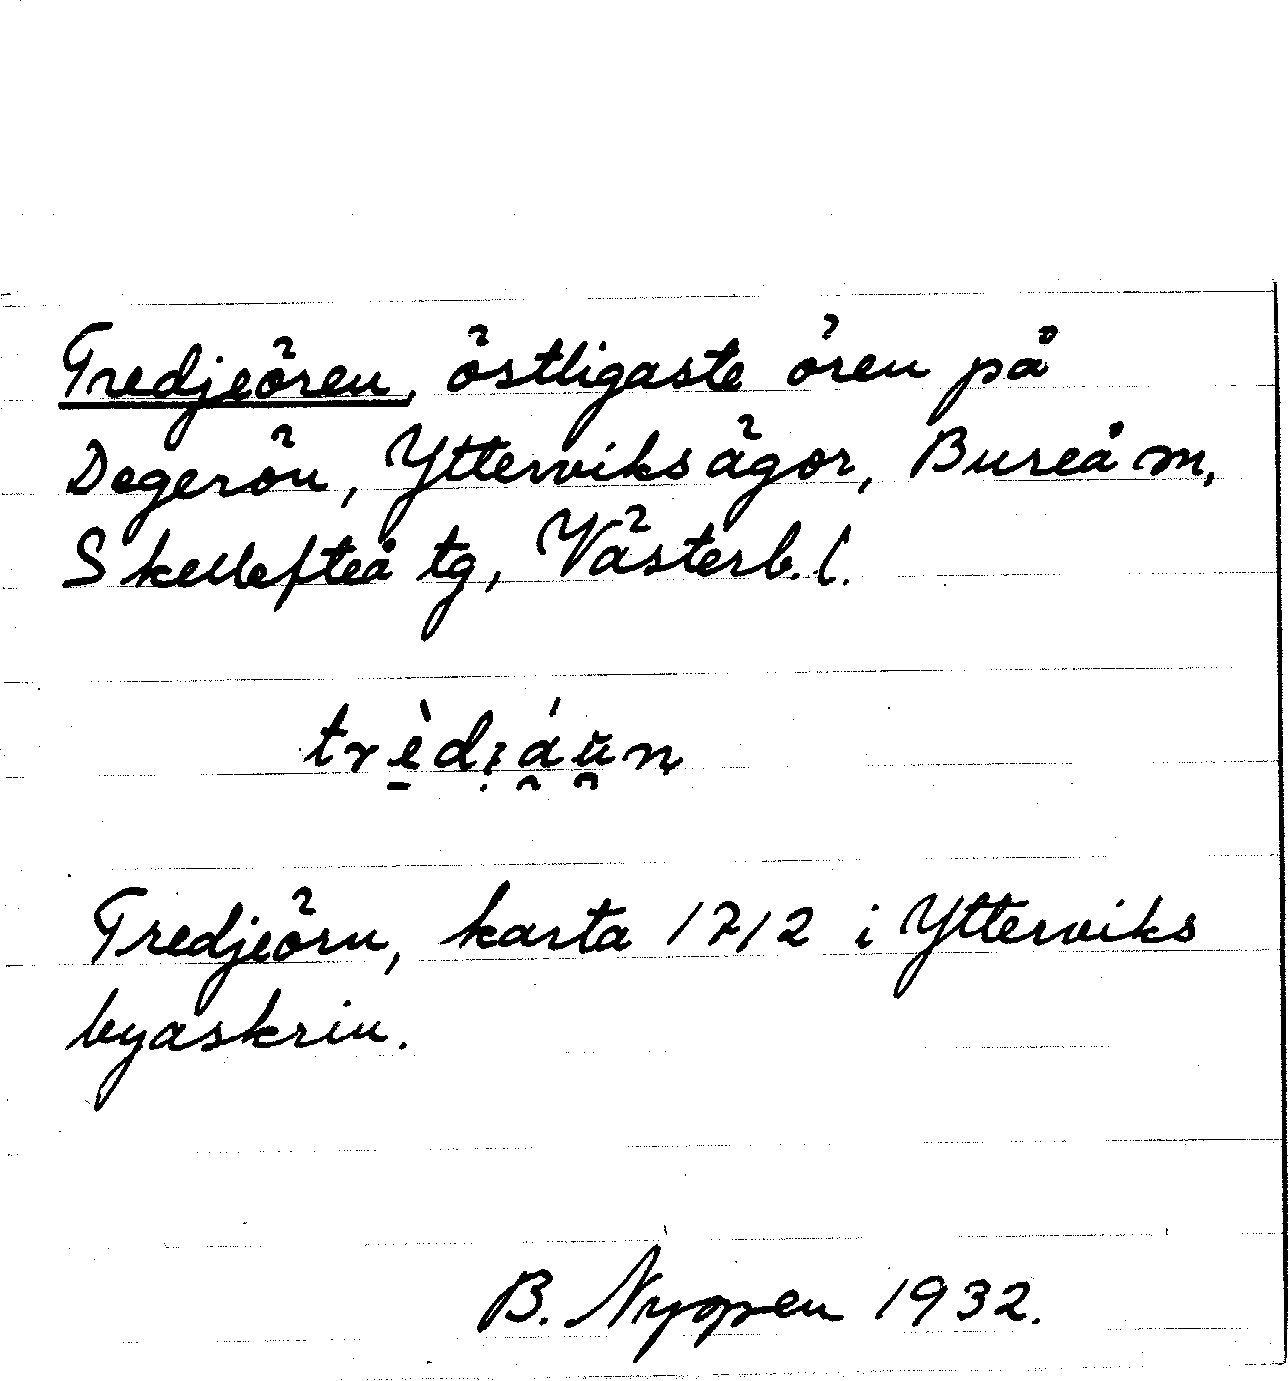 Tredjeören, östligaste ören på
Degerön, Ytterviks ägor, Bureå m,
Skellefteå tg, Västerb. l.
Tredjeörn, karta 1712 i Ytterviks
byaskrin.
B. Nygren 1932.